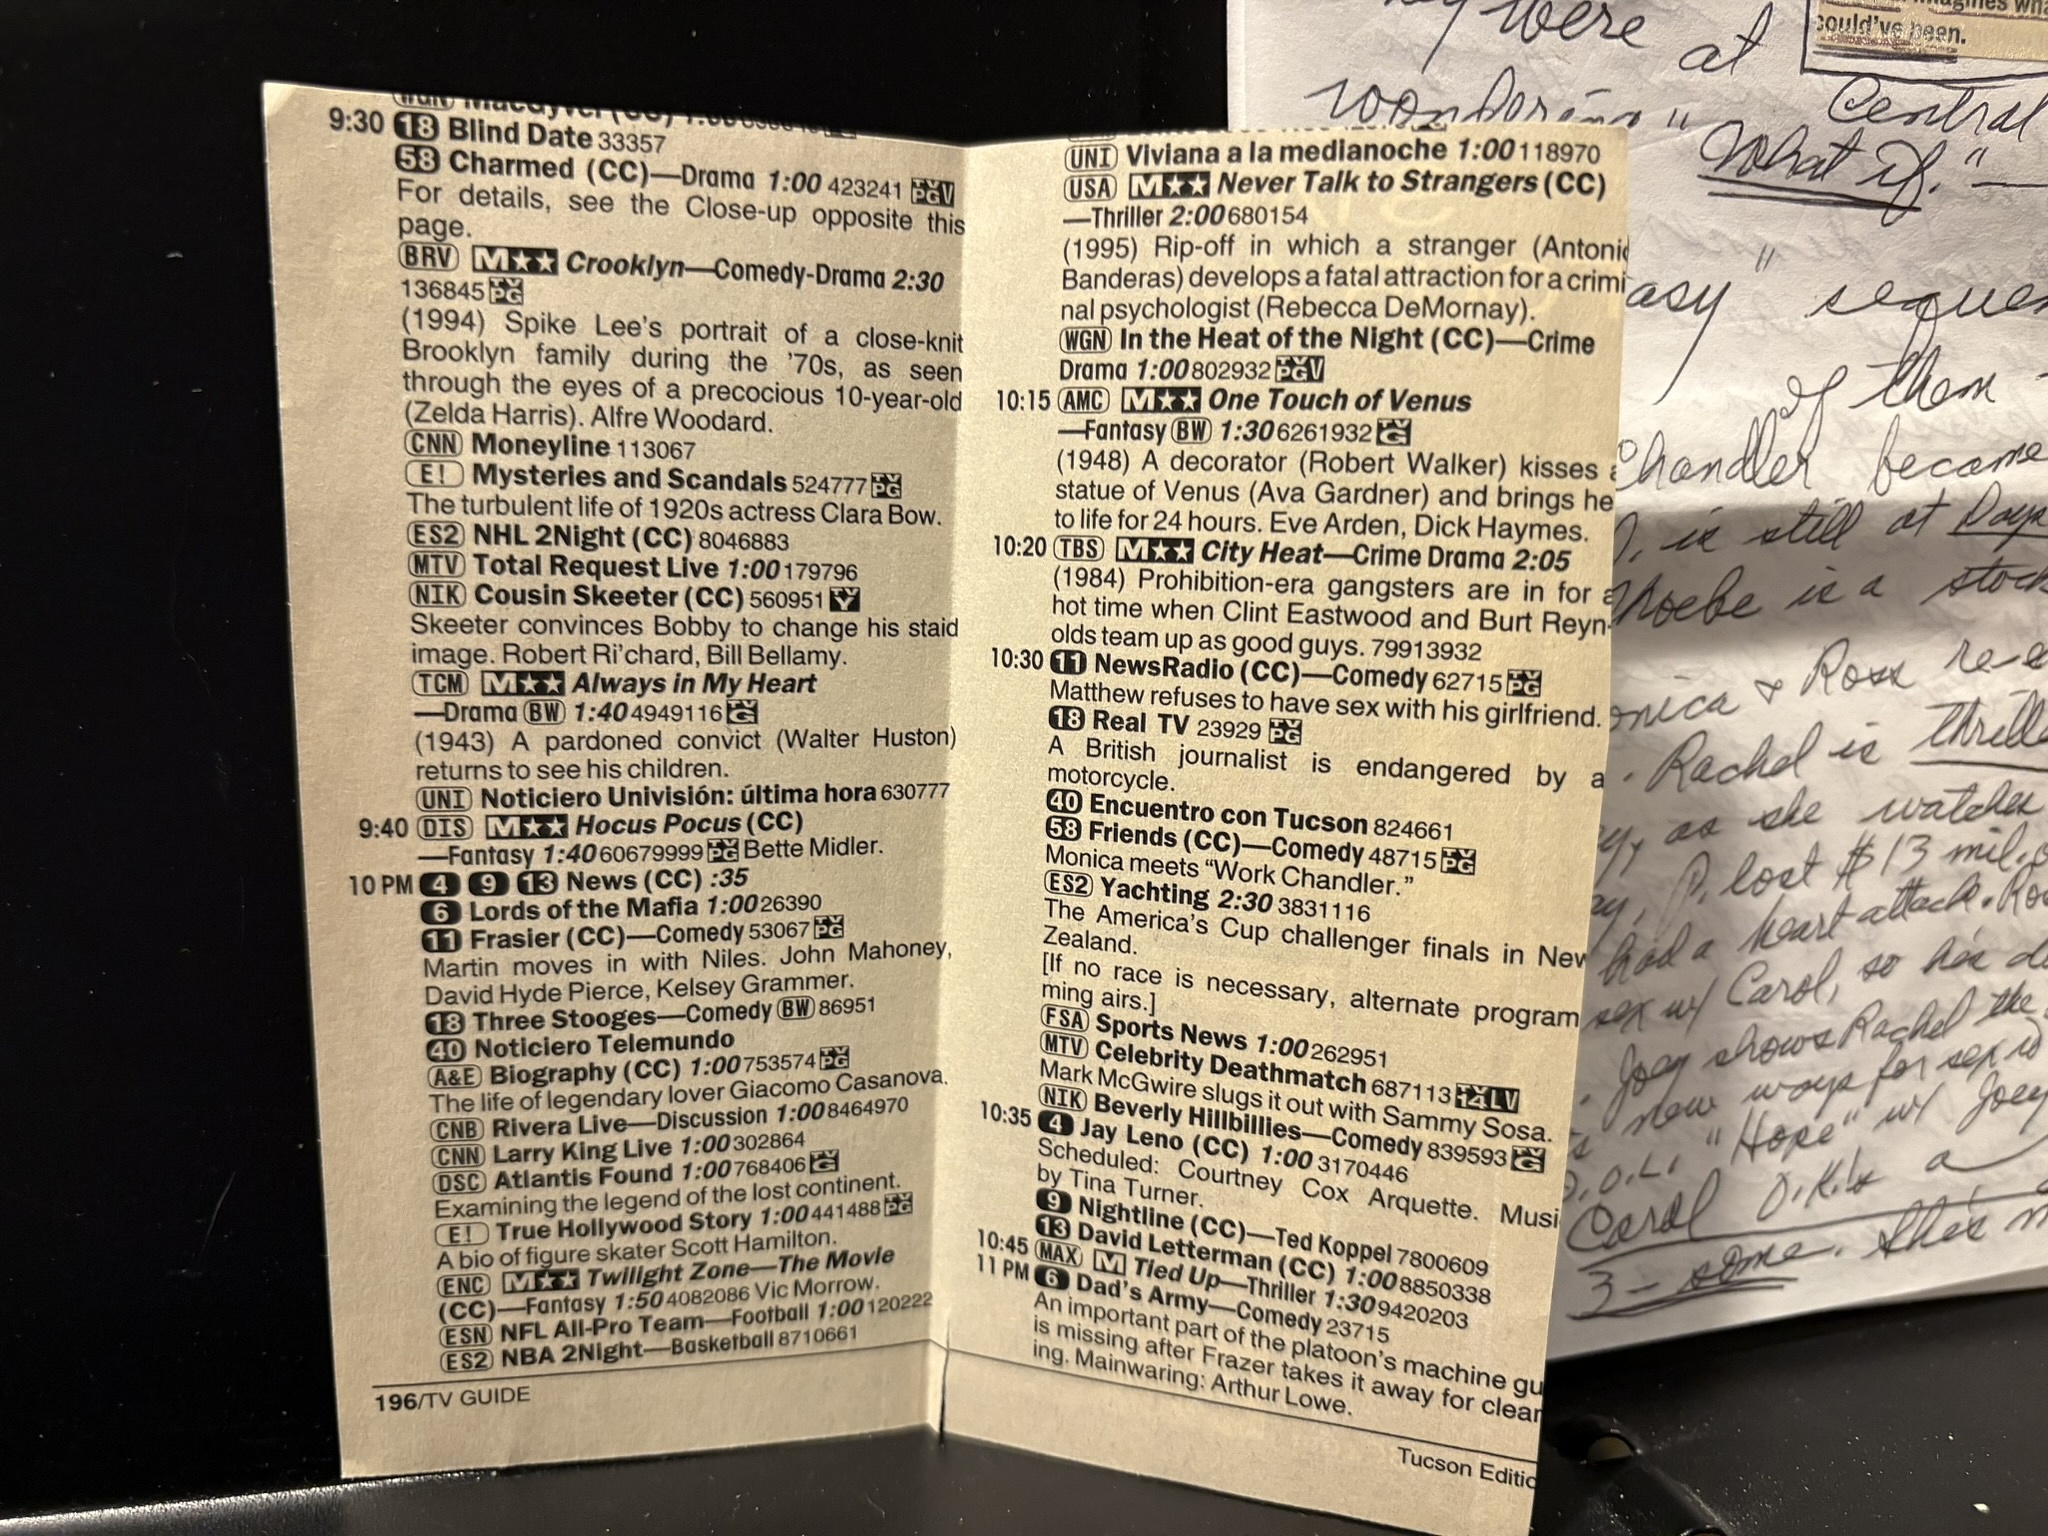 9:30 18 Blind Date 33357
58 Charmed (CC)—Drama 1:00 423241 TV PG V
For details, see the Close-up opposite this
page.
BRV M★★ Crooklyn—Comedy-Drama 2:30
136845 TV PG
(1994) Spike Lee's portrait of a close-knit
Brooklyn family during the '70s, as seen
through the eyes of a precocious 10-year-old
(Zelda Harris). Alfre Woodard.
CNN Moneyline 113067
E! Mysteries and Scandals 524777 TV PG
The turbulent life of 1920s actress Clara Bow.
ES2 NHL 2Night (CC) 8046883
MTV Total Request Live 1:00 179796
NIK Cousin Skeeter (CC) 560951 TV Y
Skeeter convinces Bobby to change his staid
image. Robert Ri'chard, Bill Bellamy.
TCM M★★ Always in My Heart
—Drama BW 1:40 4949116 TV G
(1943) A pardoned convict (Walter Huston)
returns to see his children.
UNI Noticiero Univisión: última hora 630777
9:40 DIS M★★ Hocus Pocus (CC)
—Fantasy 1:40 60679999 TV PG Bette Midler.
10 PM 4 9 13 News (CC) :35
6 Lords of the Mafia 1:00 26390
11 Frasier (CC)—Comedy 53067 TV PG
Martin moves in with Niles. John Mahoney,
David Hyde Pierce, Kelsey Grammer.
18 Three Stooges—Comedy BW 86951
40 Noticiero Telemundo
A&E Biography (CC) 1:00 753574 TV PG
The life of legendary lover Giacomo Casanova.
CNB Rivera Live—Discussion 1:00 8464970
CNN Larry King Live 1:00 302864
DSC Atlantis Found 1:00 768406 TV G
Examining the legend of the lost continent.
E! True Hollywood Story 1:00 441488 TV PG
A bio of figure skater Scott Hamilton.
ENC M★★ Twilight Zone—The Movie
(CC)—Fantasy 1:50 4082086 Vic Morrow.
ESN NFL All-Pro Team—Football 1:00 120222
ES2 NBA 2Night—Basketball 8710661
196/TV GUIDE
UNI Viviana a la medianoche 1:00 118970
USA M★★ Never Talk to Strangers (CC)
—Thriller 2:00 680154
(1995) Rip-off in which a stranger (Antonio
Banderas) develops a fatal attraction for a crimi
nal psychologist (Rebecca DeMornay).
WGN In the Heat of the Night (CC)—Crime
Drama 1:00 802932 TV PG V
10:15 AMC M★★ One Touch of Venus
—Fantasy BW 1:30 6261932 TV G
(1948) A decorator (Robert Walker) kisses a
statue of Venus (Ava Gardner) and brings he
to life for 24 hours. Eve Arden, Dick Haymes.
10:20 TBS M★★ City Heat—Crime Drama 2:05
(1984) Prohibition-era gangsters are in for a
hot time when Clint Eastwood and Burt Reyn-
olds team up as good guys. 79913932
10:30 11 NewsRadio (CC)—Comedy 62715 TV PG
Matthew refuses to have sex with his girlfriend.
18 Real TV 23929 TV PG
A British journalist is endangered by a
motorcycle.
40 Encuentro con Tucson 824661
58 Friends (CC)—Comedy 48715 TV PG
Monica meets "Work Chandler."
ES2 Yachting 2:30 3831116
The America's Cup challenger finals in New
Zealand.
[If no race is necessary, alternate program
ming airs.]
FSA Sports News 1:00 262951
MTV Celebrity Deathmatch 687113 TV 14 LV
Mark McGwire slugs it out with Sammy Sosa.
NIK Beverly Hillbillies—Comedy 839593 TV G
10:35 4 Jay Leno (CC) 1:00 3170446
Scheduled: Courtney Cox Arquette. Musi
by Tina Turner.
9 Nightline (CC)—Ted Koppel 7800609
13 David Letterman (CC) 1:00 8850338
10:45 MAX M Tied Up—Thriller 1:30 9420203
11 PM 6 Dad's Army—Comedy 23715
An important part of the platoon's machine gu
is missing after Frazer takes it away for clear
ing. Mainwaring: Arthur Lowe.
Tucson Editio
could've been.
were at Central
wondering "What if."—
asy" sequen
of them
Chandler became
is still at Days
Phoebe is a stock
onica & Ross re-e
Rachel is thrille
as she watches
P. lost $13 mil.
had a heart attack. Ro
sex w/ Carol, so he's d
Joey shows Rachel the
new ways for sex w
D.O.O.L. "Hope" w/ Joey
Carol O.K.'s a
3-some. this m